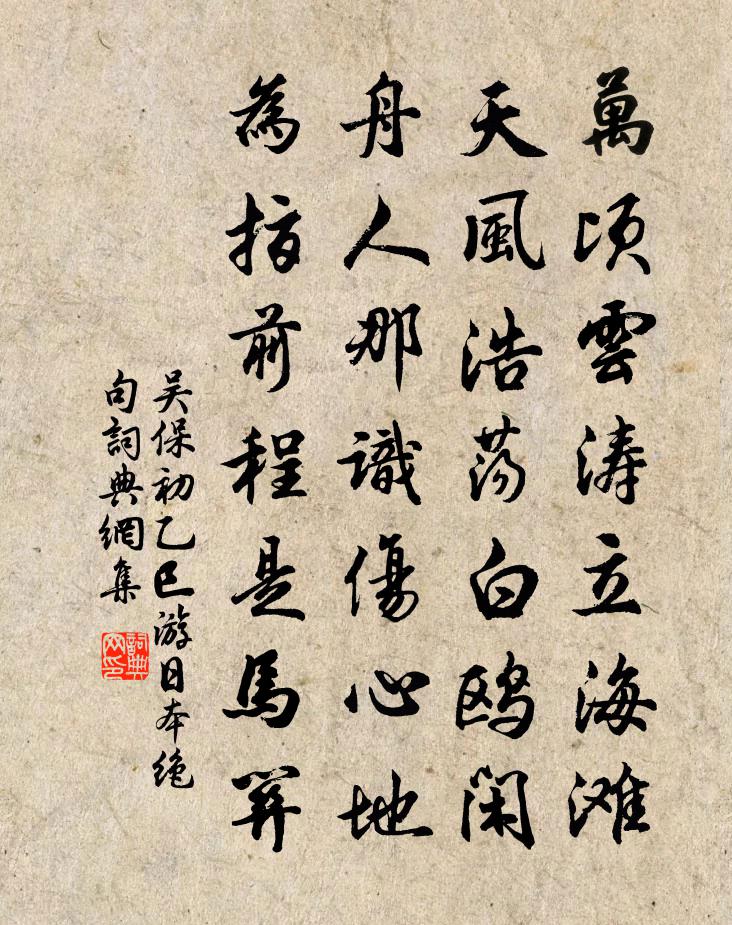 萬頃雲涛立海滩
天風浩蕩白鷗閑
舟人那識傷心地
為指前程是馬關
吴保初乙巳游日本絶
句詞典網集
詞典
网印